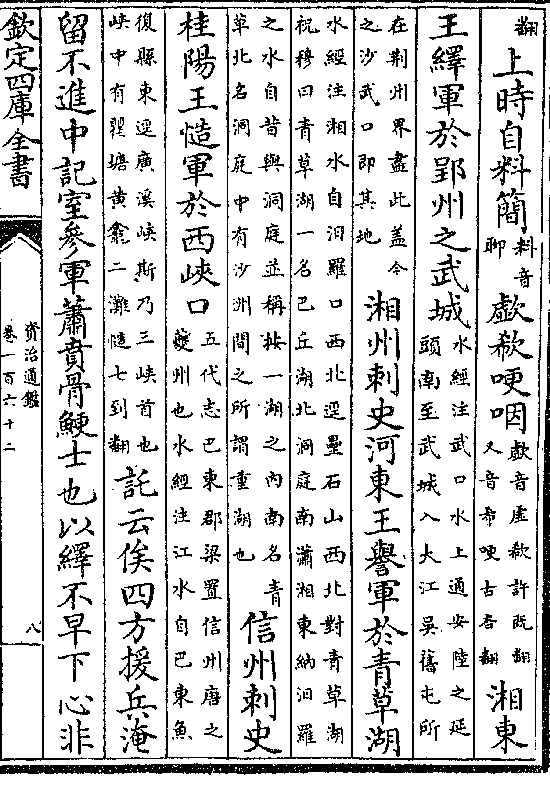 翻上時自料簡料音聊歔欷哽咽歔音虛欷許既翻又音希哽古杏翻湘東
王繹軍於郢州之武城水經注武口水上通安陸之延頭南至武城入大江吳舊屯所
在荆州界盡此盖今之沙武口即其地湘州刺史河東王譽軍於青草湖
水經注湘水自汨羅口西北逕壘石山西北對青草湖祝穆曰青草湖一名巴丘湖北洞庭南瀟湘東納汨羅
之水自昔與洞庭並稱按一湖之内南名青草北名洞庭中有沙洲間之所謂重湖也信州刺史
桂陽王慥軍於西峽口五代志巴東郡梁置信州唐之夔州也水經注江水自巴東魚
復縣東逕廣溪峽斯乃三峽首也峽中有瞿塘黄龕二灘慥七到翻託云俟四方援兵淹
留不進中記室參軍蕭賁骨鯁士也以繹不早下心非
欽定四庫全書
資治通鑑
卷一百六十二
八